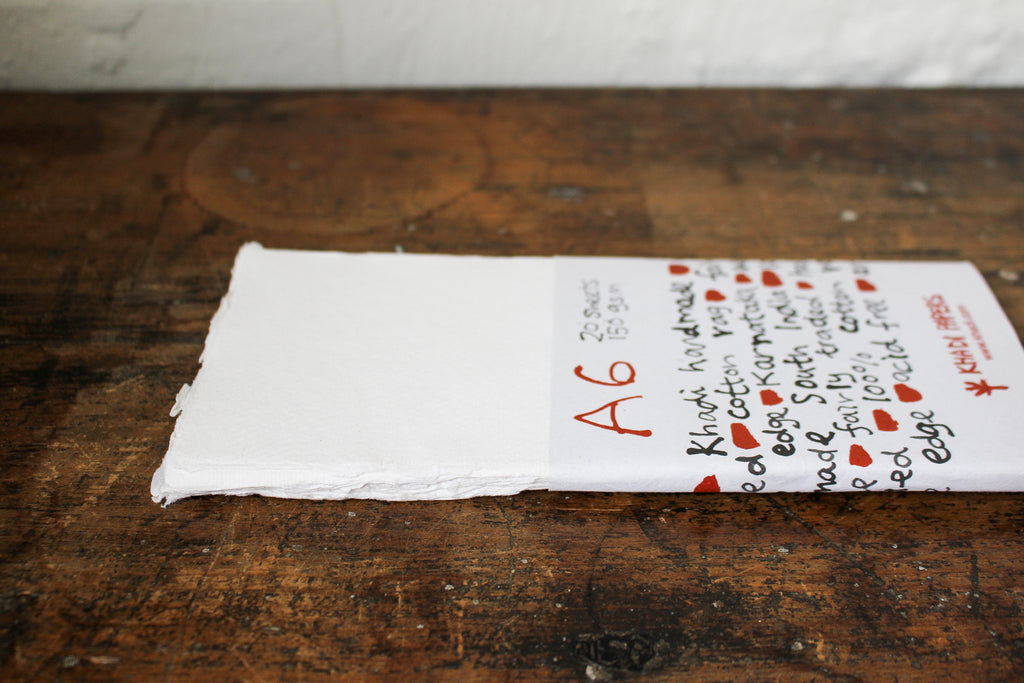 A6
20 SHEETS
150 gsm
Khadi handmade
ed cotton rag
edge Karnataka
made South India
fairly traded
red 100% cotton
edge acid free
KHADI PAPERS
www.khadi.com